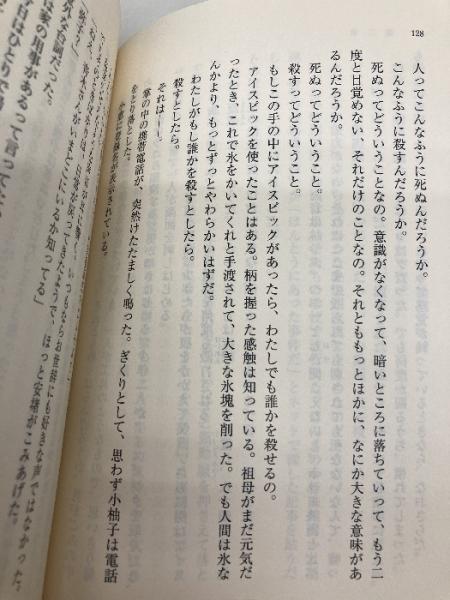 128
人ってこんなふうに死ぬんだろうか。
こんなふうに殺すんだろうか。
死ぬってどういうことなの。意識がなくなって、暗いところに落ちていって、もう二
度と目覚めない、それだけのことなの。それとももっとほかに、なにか大きな意味があ
るんだろうか。
死ぬってどういうこと。
殺すってどういうこと。
もしこの手の中にアイスピックがあったら、わたしでも誰かを殺せるの。
アイスピックを使ったことはある。柄を握った感触は知っている。祖母がまだ元気だ
ったとき、これで氷をかいてくれと手渡されて、大きな氷塊を削った。でも人間は氷な
んかより、もっとずっとやわらかいはずだ。
わたしがもし誰かを殺すとしたら。
殺すとしたら。
それは――。
掌の中の携帯電話が、突然けたたましく鳴った。ぎくりとして、思わず小柚子は電話
をとり落とした。
が表示されている。
いつもならお世辞にも好きな声ではなかった。
日常が戻ってきたようで、ほっと安堵がこみあげた。
どこにいるか知ってる」
な台詞だった。
日は家の用事があるって言ってた